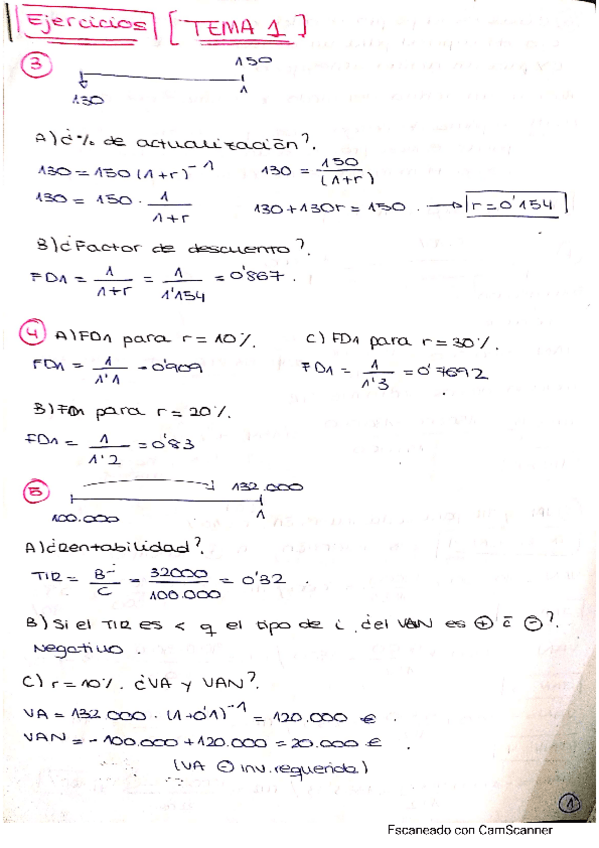 Ejercicios [TEMA 1]
3
150
130
1
A) ¿% de actualización?.
130 = 150 (1+r)⁻¹ 130 = 150/(1+r)
130 = 150 · 1/1+r 130 + 130r = 150 . → r = 0'154
B) ¿Factor de descuento?.
FD1 = 1/1+r = 1/1'154 = 0'867 .
4 A) FD1 para r = 10%. C) FD1 para r = 30%.
FD1 = 1/1'1 = 0'909 FD1 = 1/1'3 = 0'7692
B) FD1 para r = 20%.
FD1 = 1/1'2 = 0'83
5
132.000
100.000
1
A) ¿Rentabilidad?.
TIR = B/C = 32000/100.000 = 0'32 .
B) Si el TIR es < q el tipo de i, ¿el VAN es ⊕ ó ⊖?.
Negativo .
C) r = 10%. ¿VA y VAN?.
VA = 132 000 · (1+0'1)⁻¹ = 120.000 € .
VAN = - 100.000 + 120.000 = 20.000 € .
(VA ⊖ inv. requerida)
1
Escaneado con CamScanner